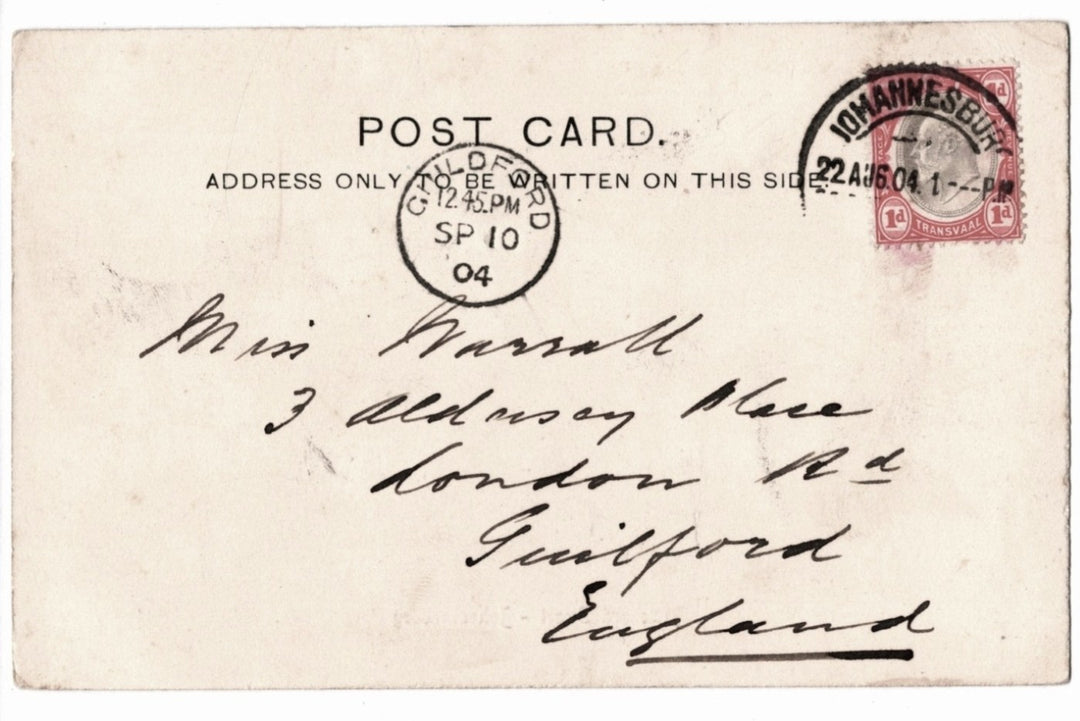 POST CARD.
ADDRESS ONLY TO BE WRITTEN ON THIS SIDE.
JOHANNESBURG
22 AUG.04. 1---P.M
1d 1d
TRANSVAAL
GUILDFORD
12.45.PM
SP 10
04
Miss Warrall
3 Aldersey Place
London Rd
Guilford
England